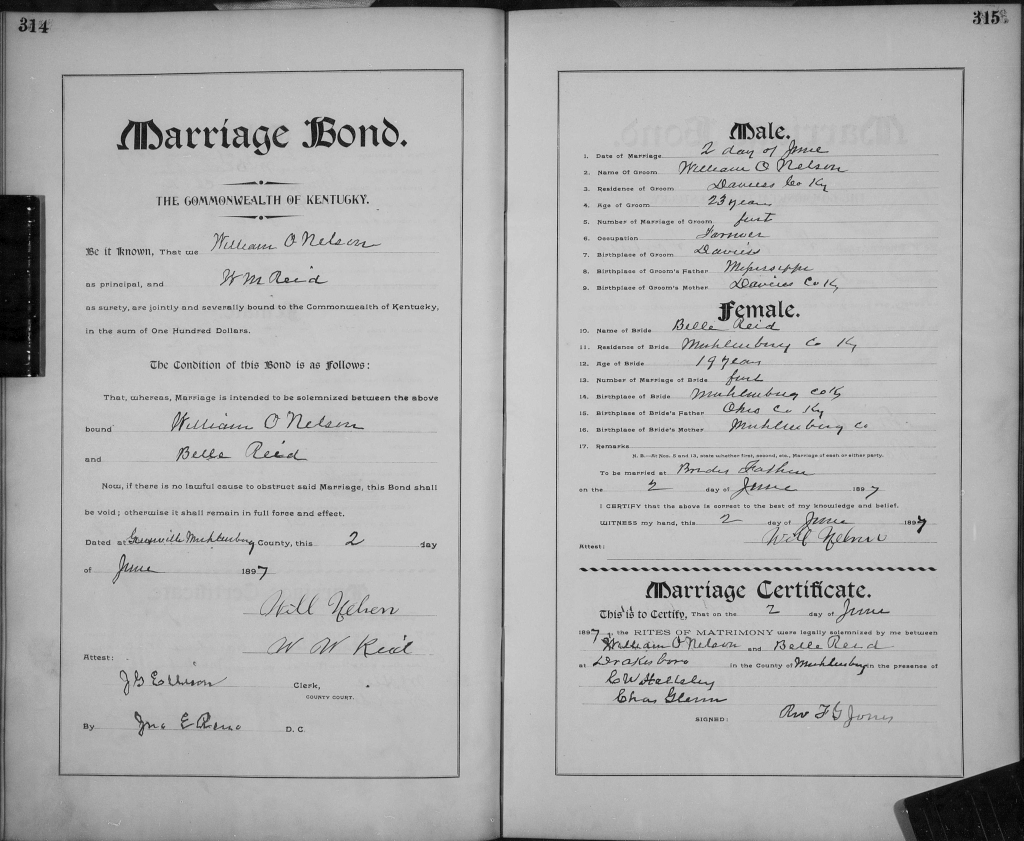 314
Marriage Bond.
THE COMMONWEALTH OF KENTUCKY.
Be it Known, That we William O Nelson
as principal, and W M Reid
as surety, are jointly and severally bound to the Commonwealth of Kentucky,
in the sum of One Hundred Dollars.
The Condition of this Bond is as Follows:
That, whereas, Marriage is intended to be solemnized between the above
bound William O Nelson
and Belle Reid
Now, if there is no lawful cause to obstruct said Marriage, this Bond shall
be void; otherwise it shall remain in full force and effect.
Dated at Greenville Muhlenburg County, this 2 day
of June 1897
Will Nelson
W W Reid
Attest:
J G Ellison Clerk,
COUNTY COURT.
By Jno E Reno D. C.
315
Male.
1. Date of Marriage 2 day of June
2. Name Of Groom William O Nelson
3. Residence of Groom Daviess Co Ky
4. Age of Groom 23 years
5. Number of Marriage of Groom first
6. Occupation Farmer
7. Birthplace of Groom Daviess
8. Birthplace of Groom's Father Mississippi
9. Birthplace of Groom's Mother Daviess Co K
Female.
10. Name of Bride Belle Reid
11. Residence of Bride Muhlenburg Co Ky
12. Age of Bride 19 years
13. Number of Marriage of Bride first
14. Birthplace of Bride Muhlenburg Co K
15. Birthplace of Bride's Father Ohio Co Ky
16. Birthplace of Bride's Mother Muhlenburg Co
17. Remarks
N. B.—At Nos. 5 and 13, state whether first, second, etc., Marriage of each or either party.
To be married at Brides Father
on the 2 day of June 1897
I CERTIFY that the above is correct to the best of my knowledge and belief.
WITNESS my hand, this 2 day of June 1897
Will Nelson
Attest:
Marriage Certificate.
This is to Certify, That on the 2 day of June
1897, the RITES OF MATRIMONY were legally solemnized by me between
William O Nelson and Belle Reid
at Drakesboro in the County of Muhlenburg in the presence of
C W
Chas Glenn
SIGNED: Rev F G Jones